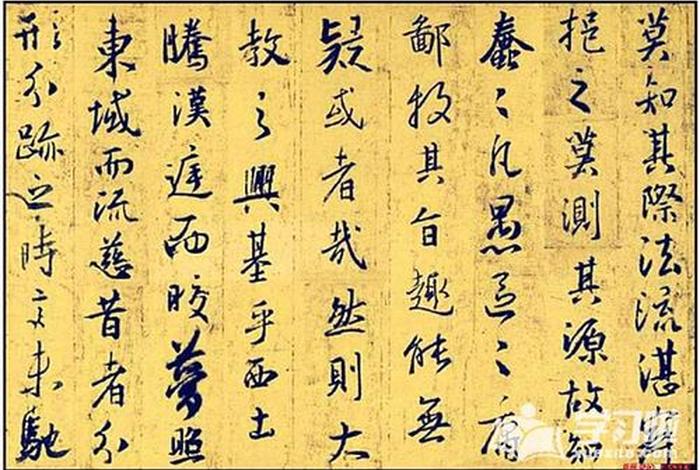 莫知其際法流湛寂
挹之莫測其源故知
蠢〻凡愚區〻庸
鄙投其旨趣能無
疑或者哉然則大
教之興基乎西土
騰漢庭而晈夢照
東域而流慈昔者分
形分跡之時言未馳
学习啦